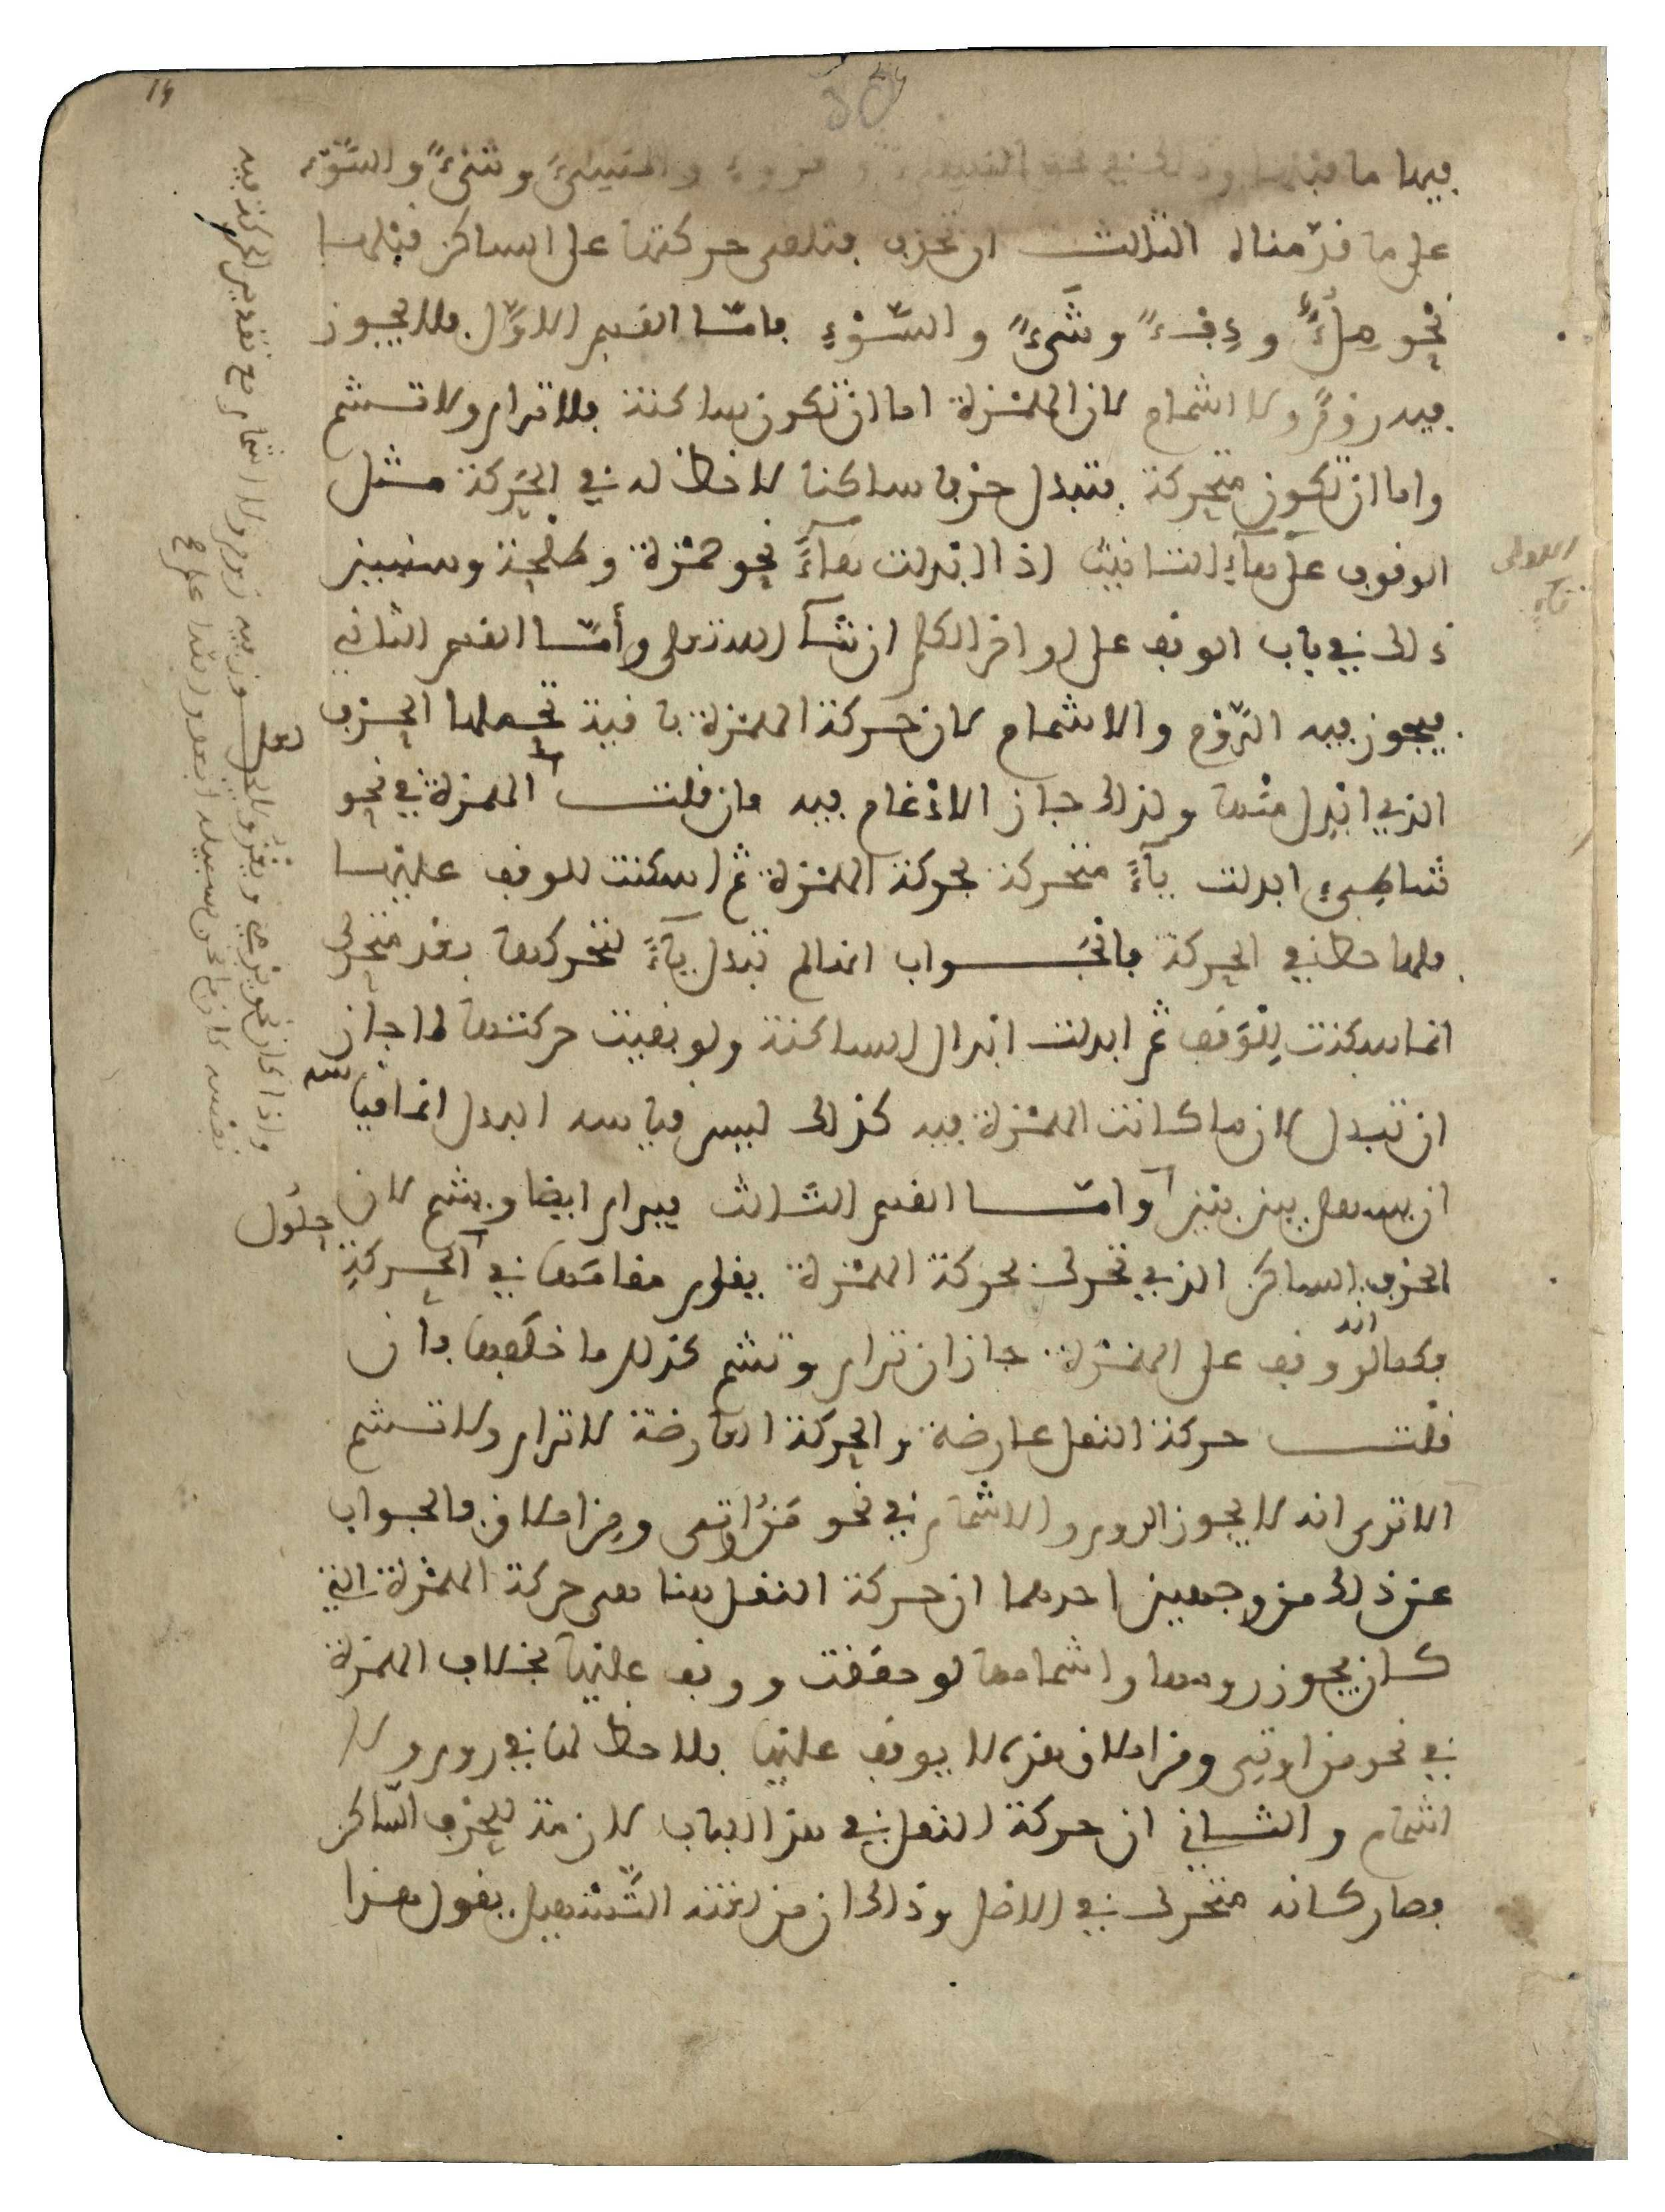 فيها ما قبلها وذلك في نحو النسيء و قروء والمسيء وشيء والسوء
على ما قدمناه الثالث ان تحذف فتلقى حركتها على الساكن قبلها
نحو مِلْءٌ ودِفْءٌ وشَيْءٌ والسَّوْءِ فامّا القسم الاوّل فلا يجوز
فيه رَوْمٌ ولا اشمام لان الهمزة اما ان تكون ساكنة فلا ترام ولا تشم
واما ان تكون متحركة فتبدل حرفا ساكنا لا حظ له في الحركة مثل
الوقوف على هآء التانيث اذا ابدلت هآءً نحو حمزة وطلحة وسنبين
ذلك في باب الوقف على اواخر الكلم ان شآ الله تعلى وأمّا القسم الثاني
فيجوز فيه الرَّوْم والاشمام لان حركة الهمزة باقية تحملها الحرف
الذي ابْدِل منها ولذلك جاز الادْغام فيه فان قلت الهمزة في نحو
شاطِىءِ ابدلت يآءً متحركة بحركة الهمزة ثم اسكنت للوقف عليها
فلها حظ في الحركة فالجَواب انها لم تبدل يآءً لتحركها بعد متحرك
انما سكنت لِلْوَقف ثم ابدلت ابدال الساكنة ولو بقيت حركتها لما جاز
ان تبدل لان ما كانت الهمزة فيه كذلك ليس قياسه البدل انما قياسه
ان يسهل بين بين وامّا القسم الثَّالث فيرام ايضا ويشم لان حلول
الحرف الساكن الذي تحرك بحركة الهمزة يقوم مقامَها في الحركةِ
فكما انه لو وقف على الهمزة جاز ان ترام وتشم كذلك ما خلَفها فان
قلت حركة النقل عارضة والحركة العارضة لا ترام ولا تشم
الا ترى انه لا يجوز الروم والاشمام في نحو مَنُ اوتى ومِنِ املاق فالجواب
عن ذلك من وجهين احدهما ان حركة النقل هنا هى حركة الهمزة التي
كان يجوز رومها واشمامها لو حققت ووقف عليها بخلاف الهمزة
في نحو من اوتى ومن املاق هذه لا يوقف عليها فلا حظ لها في روم ولا
اشمام والثاني ان حركة النقل في هذا الباب لازمة للحرف السّاكن
فصار كانه متحرك في الاصل وذلك ان من لغته التَّسْهيل يقول هذا